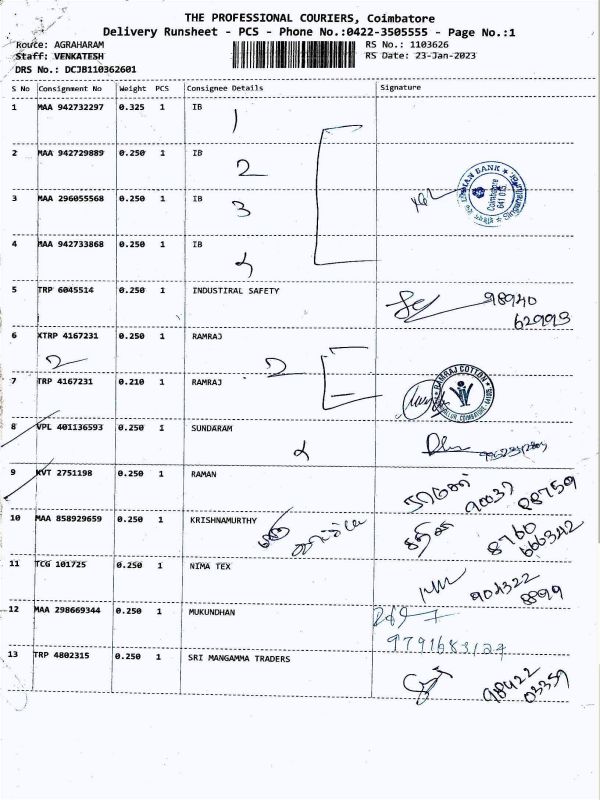 THE PROFESSIONAL COURIERS, Coimbatore
Delivery Runsheet - PCS - Phone No.:0422-3505555 - Page No.:1
Route: AGRAHARAM RS No.: 1103626
Staff: VENKATESH RS Date: 23-Jan-2023
DRS No.: DCJB110362601
S No Consignment No Weight PCS Consignee Details Signature
1 MAA 942732297 0.325 1 IB
1
2 MAA 942729889 0.250 1 IB
2
3 MAA 296055568 0.250 1 IB
3
4 MAA 942733868 0.250 1 IB
4
INDIAN BANK
Coimbatore
641 015
5 TRP 6045514 0.250 1 INDUSTIRAL SAFETY
98940
62993
6 XTRP 4167231 0.250 1 RAMRAJ
2 2
7 TRP 4167231 0.210 1 RAMRAJ
RAMRAJ COTTON
8 VPL 401136593 0.250 1 SUNDARAM
9 KVT 2751198 0.250 1 RAMAN
90037
88759
10 MAA 858929659 0.250 1 KRISHNAMURTHY
8760
666342
11 TCG 101725 0.250 1 NIMA TEX
901322
8899
12 MAA 298669344 0.250 1 MUKUNDHAN
9791683127
13 TRP 4802315 0.250 1 SRI MANGAMMA TRADERS
98422
03359